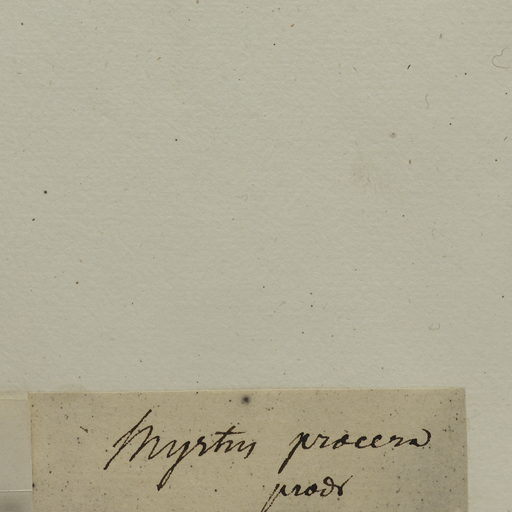 Myrtus procera
prodr